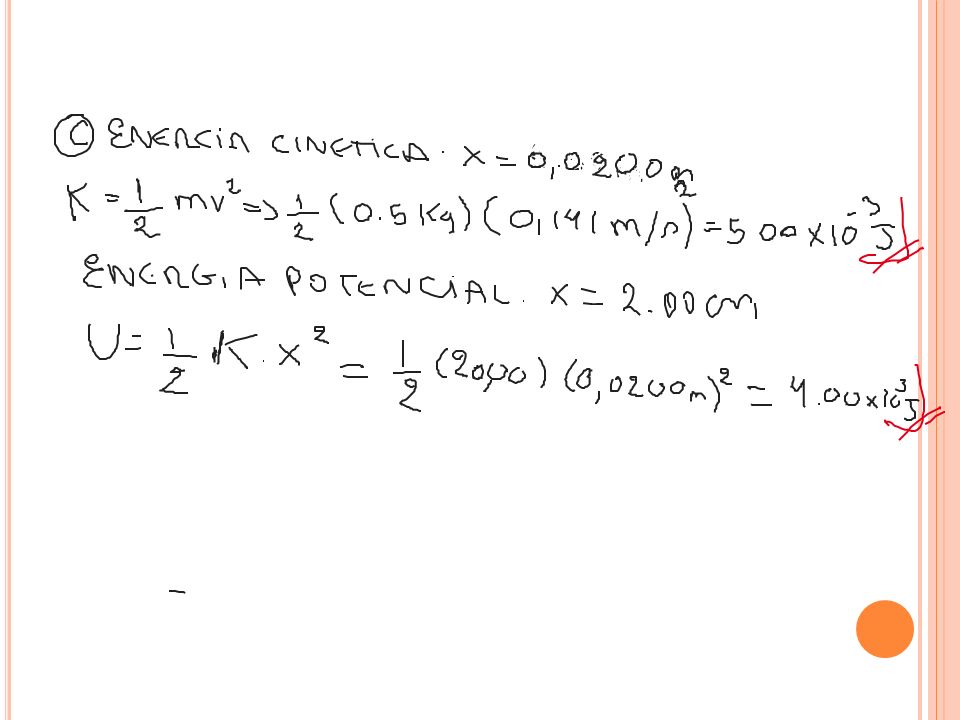 C ENERCIA CINETICA. X = 0,0200 m
K = 1/2 mv² => 1/2 (0.5 Kg) (0,141 m/s)² = 5 00 x 10⁻³ J
ENERGIA POTENCIAL. X = 2.00 cm
U = 1/2 K.x² = 1/2 (20,00) (0,0200m)² = 4.00x10³J